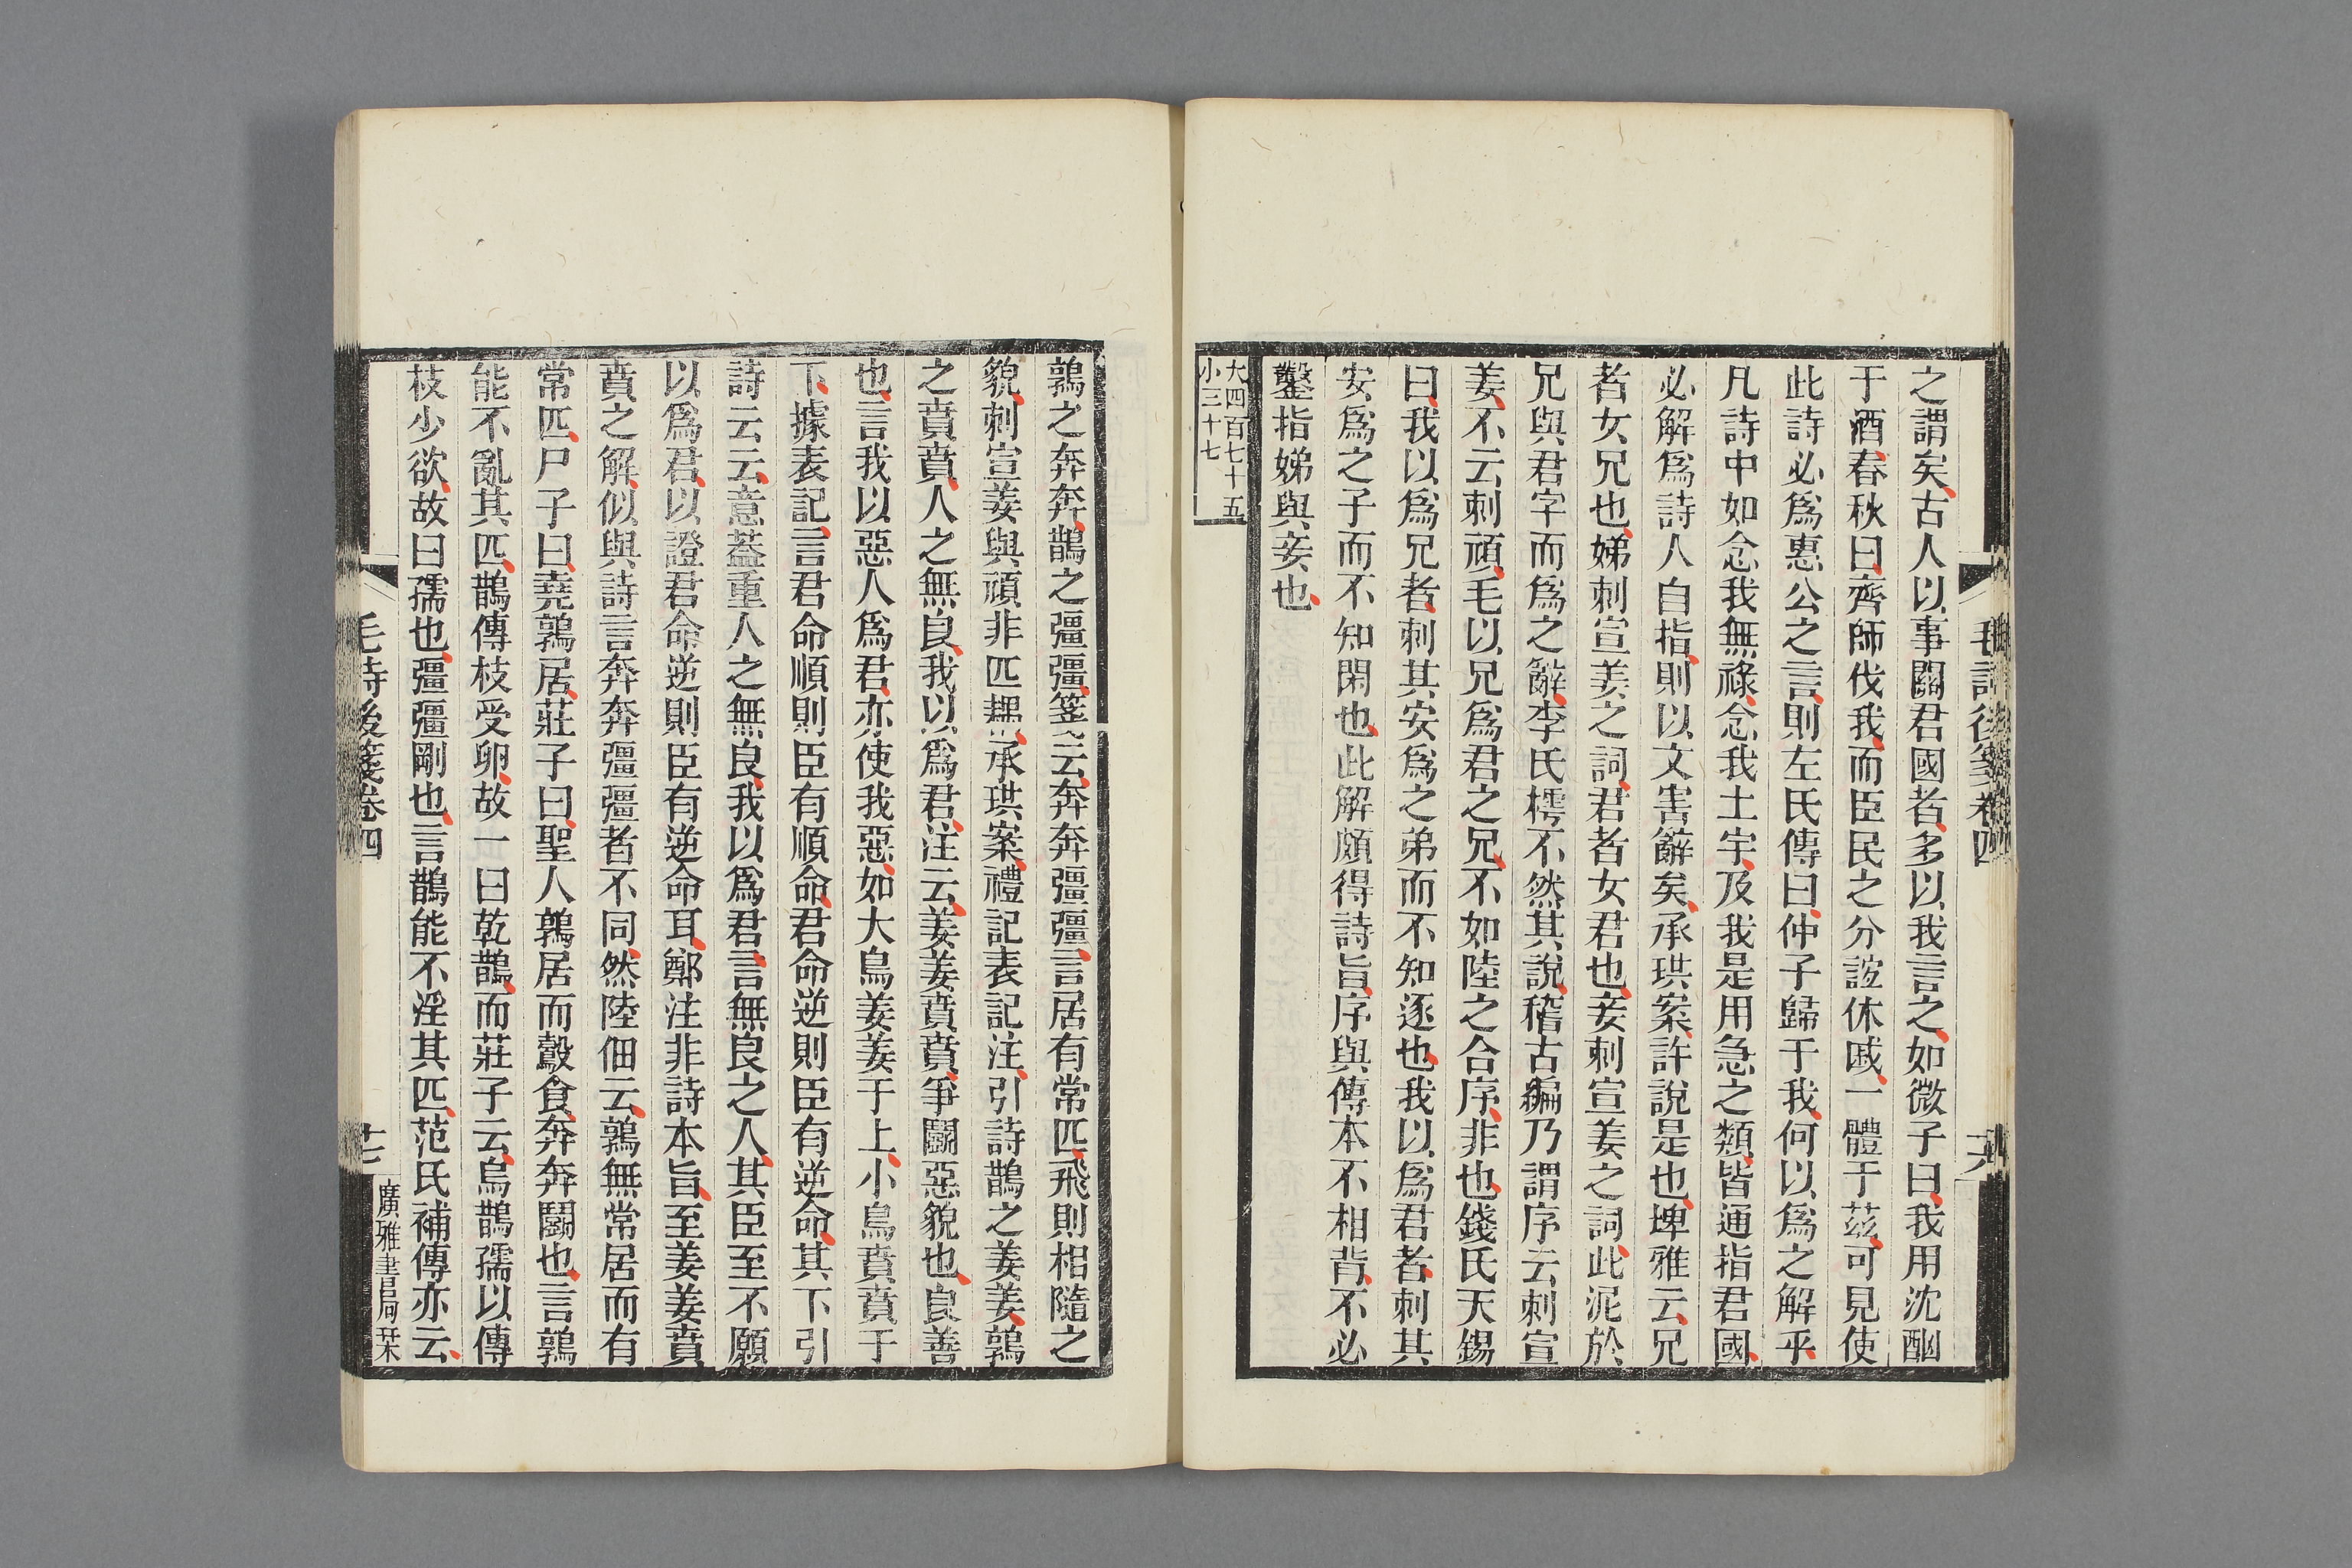 之謂矣古人以事關君國者多以我言之如微子曰我用沈酗
于酒春秋曰齊師伐我而臣民之分誼休戚一體于茲可見使
此詩必爲惠公之言則左氏傳曰仲子歸于我何以爲之解乎
凡詩中如念我無祿念我土宇及我是用急之類皆通指君國
必解爲詩人自指則以文害辭矣承珙案許說是也埤雅云兄
者女兄也娣刺宣姜之詞君者女君也妾刺宣姜之詞此泥於
兄與君字而爲之辭李氏樗不然其說稽古編乃謂序云刺宣
姜不云刺頑毛以兄爲君之兄不如陸之合序非也錢氏天錫
曰我以爲兄者刺其安爲之弟而不知逐也我以爲君者刺其
安爲之子而不知閑也此解頗得詩旨序與傳本不相背不必
鑿指娣與妾也
大四百七十五
小三十七
毛詩後箋卷四
十六
鶉之奔奔鵲之彊彊箋云奔奔彊彊言居有常匹飛則相隨之
貌刺宣姜與頑非匹耦承珙案禮記表記注引詩鵲之姜姜鶉
之賁賁人之無良我以爲君注云姜姜賁賁爭鬭惡貌也良善
也言我以惡人爲君亦使我惡如大鳥姜姜于上小鳥賁賁于
下據表記言君命順則臣有順命君命逆則臣有逆命其下引
詩云云意蓋重人之無良我以爲君言無良之人其臣至不願
以爲君以證君命逆則臣有逆命耳鄭注非詩本旨至姜姜賁
賁之解似與詩言奔奔彊彊者不同然陸佃云鶉無常居而有
常匹尸子曰堯鶉居莊子曰聖人鶉居而鷇食奔奔鬭也言鶉
能不亂其匹鵲傳枝受卵故一曰乾鵲而莊子云烏鵲孺以傳
枝少欲故曰孺也彊彊剛也言鵲能不淫其匹范氏補傳亦云
毛詩後箋卷四
十七
廣雅書局栞